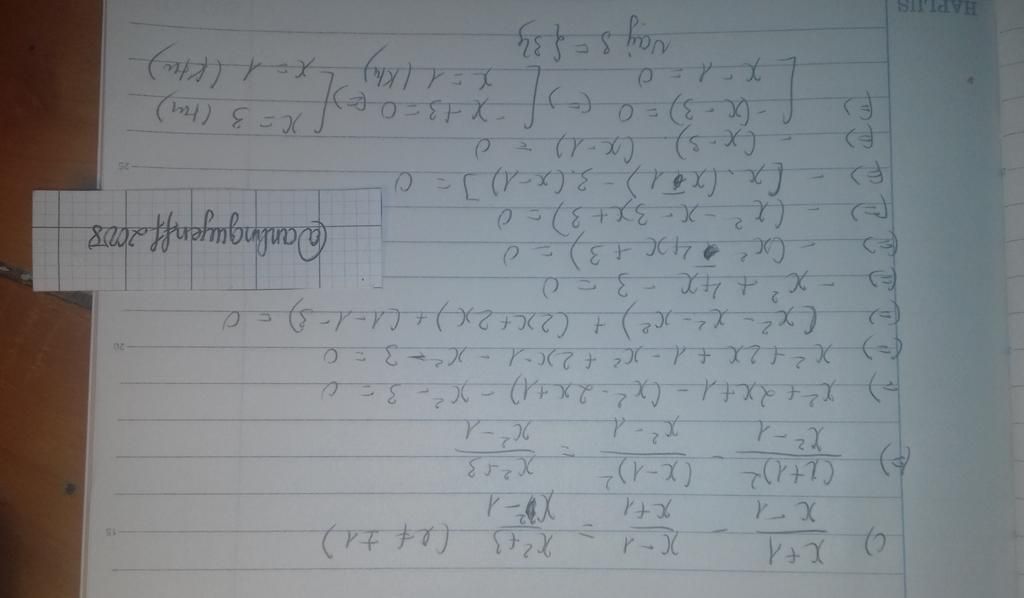 HAPLUS
c) x+1/x-1 - x-1/x+1 = x²+3/x²-1 (x ≠ ±1)
(=) (x+1)²/x²-1 - (x-1)²/x²-1 = x²+3/x²-1
=) x²+2x+1 - (x²-2x+1) - x²-3 = 0
(=) x²+2x+1-x²+2x-1-x²-3 = 0
(=) (x²-x²-x²) + (2x+2x)+(1-1-3) = 0
(=) -x²+4x-3 = 0
(=) -(x²-4x+3) = 0
(=) -(x²-x-3x+3) = 0
(=) -[x.(x-1)-3.(x-1)] = 0
(=) -(x-3).(x-1) = 0
(=) [-(x-3)=0 (=) [-x+3=0 (=) [x=3 (tm)
x-1=0 x=1 (ktm) x=1 (ktm)
Vậy S = {3}
@anhnguyenff2008
15
20
25